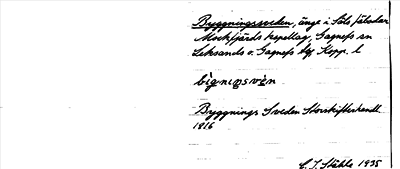 Byggningssveden, änge i Säls fäbodar
Mockfjärds kapellag, Gagnefs sn
Leksands o. Gagnefs tgs Kopp. l
Byggnings Sveden Storskifteshandl.
1816
C. I. Ståhle 1935